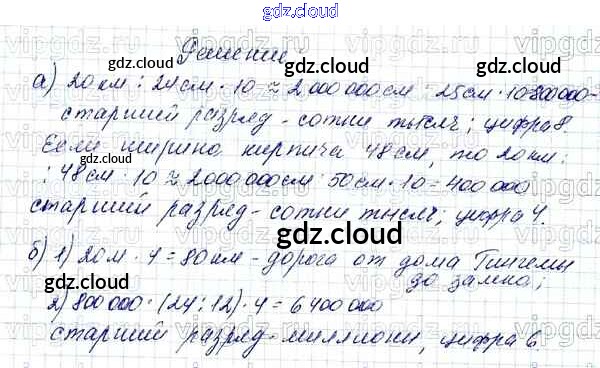 gdz.cloud
Решение
а) 20 км : 24 см · 10 ≈ 2 000 000 см : 25 см · 10 = 800 000 -
старший разряд - сотни тысяч; цифра 8.
Если ширина кирпича 48 см, то 20 км :
: 48 см · 10 ≈ 2000 000 см : 50 см · 10 = 400 000
старший разряд - сотни тысяч; цифра 4.
б) 1) 20 м · 4 = 80 км - дорога от дома Гингемы
до замка;
2) 800 000 · (24 : 12) · 4 = 6 400 000
старший разряд - миллионы, цифра 6.